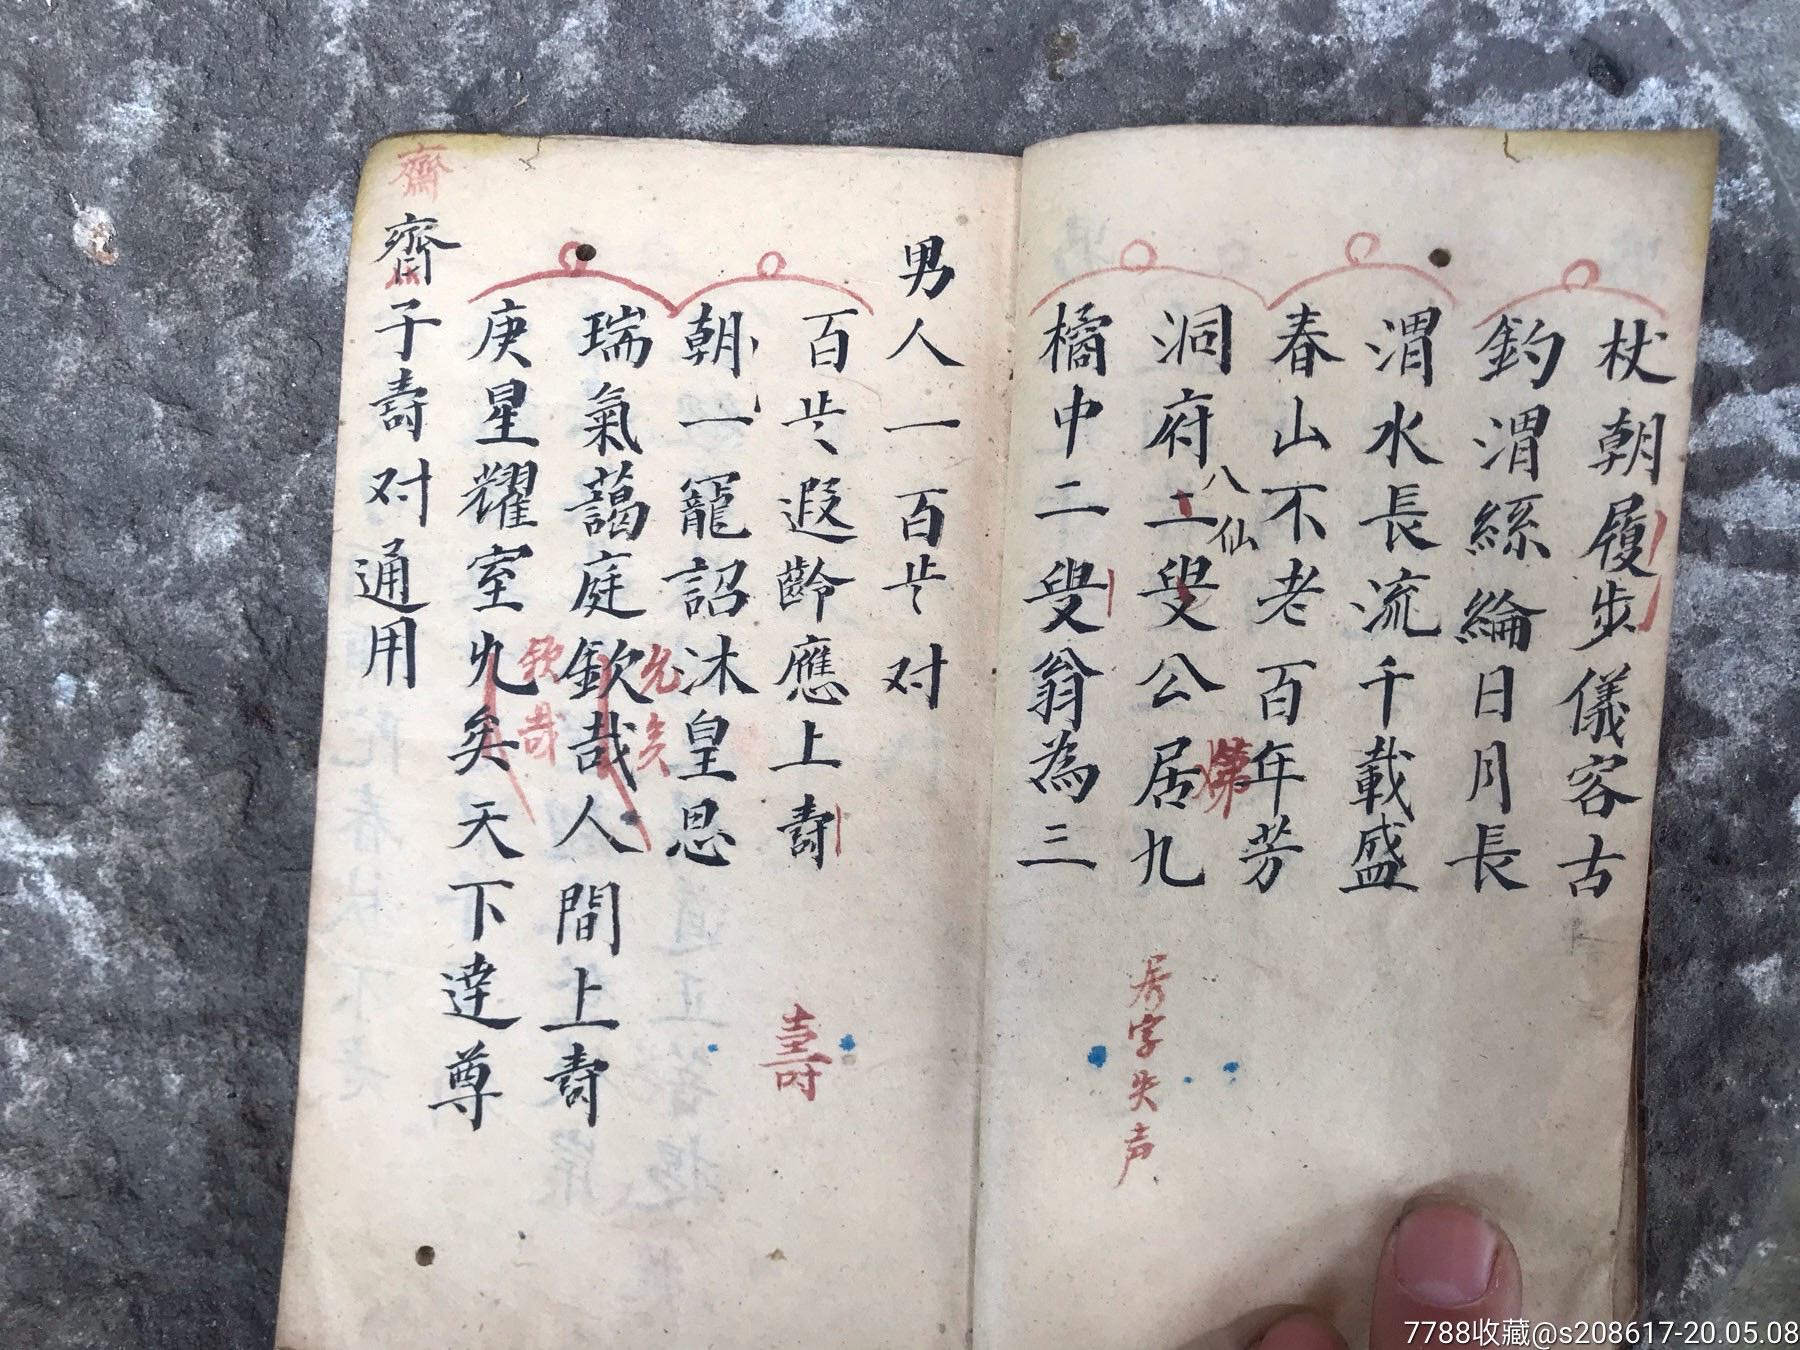 杖朝履步儀容古
釣渭絲綸日月長
渭水長流千載盛
春山不老百年芳
八仙
第
洞府二叟公居九
居字失声
橘中二叟翁為三
男人一百岁对
百岁遐齡應上壽
壽
朝一寵詔沐皇恩
允矣
瑞氣藹庭欽哉人間上壽
欽哉
庚星耀室允矣天下達尊
齋
齋子壽对通用
7788收藏@s208617-20.05.08